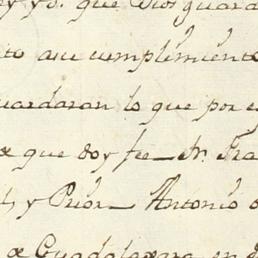 y yo. que Dios guard
to a su cumplimiento
uardaran lo que por e
que doy fee Fr. Fra
y Prior Antonio
de Guadalaxara en